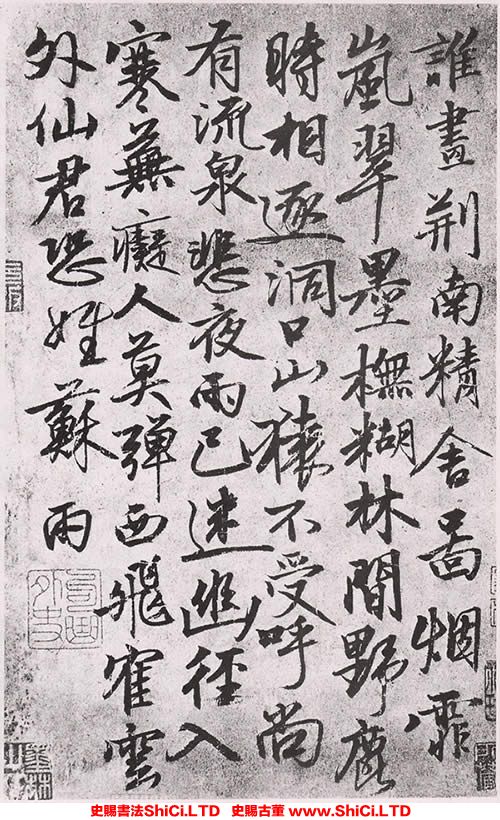 誰畫荊南精舍圖烟霏
嵐翠墨橅糊林間野鹿
時相逐洞口山猿不受呼尚
有流泉悲夜雨已迷幽徑入
寒蕪癡人莫彈西飛隺雲
外仙君恐姓蘇雨
句曲外史
史賜書法ShiCi.LTD 史賜古董 www.ShiCi.LTD